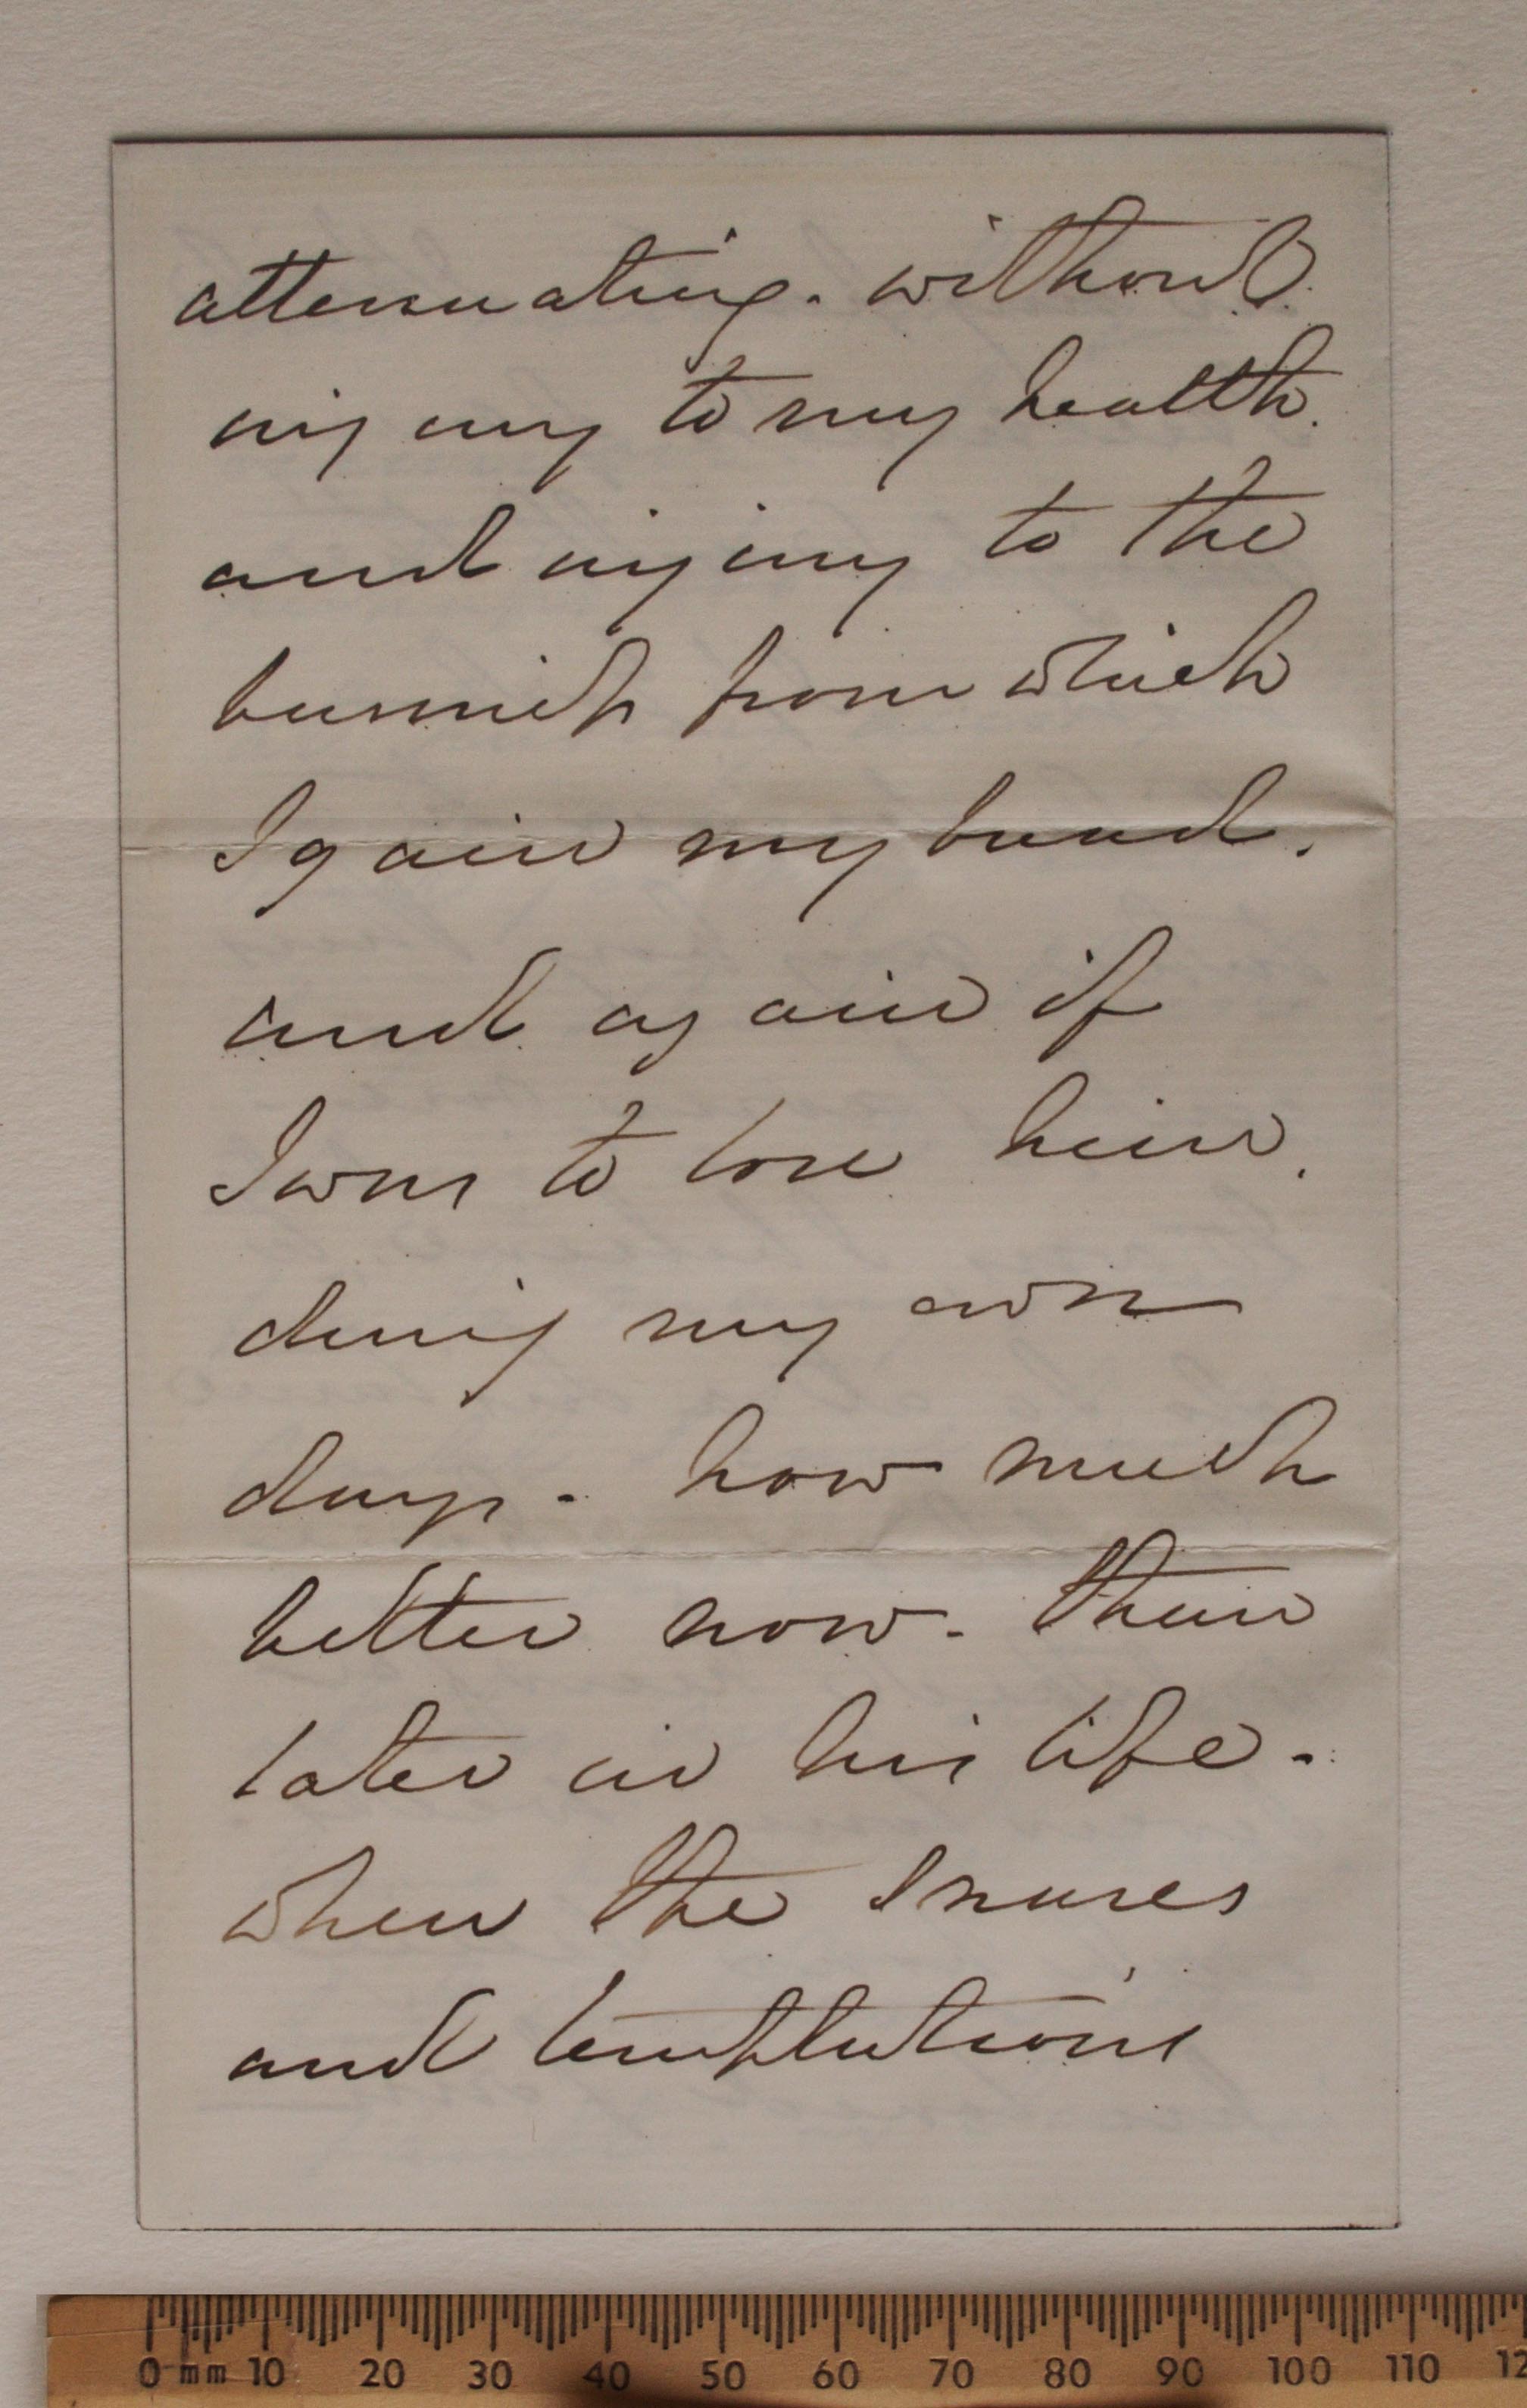 attenuating. without
injury to my health.
and injury to the
business from which
I gain my bread.
and again if
I was to lose him.
during my own
days - how much
better now - than
later in his life -
when the snares
and temptations
0 mm 10 20 30 40 50 60 70 80 90 100 110 12